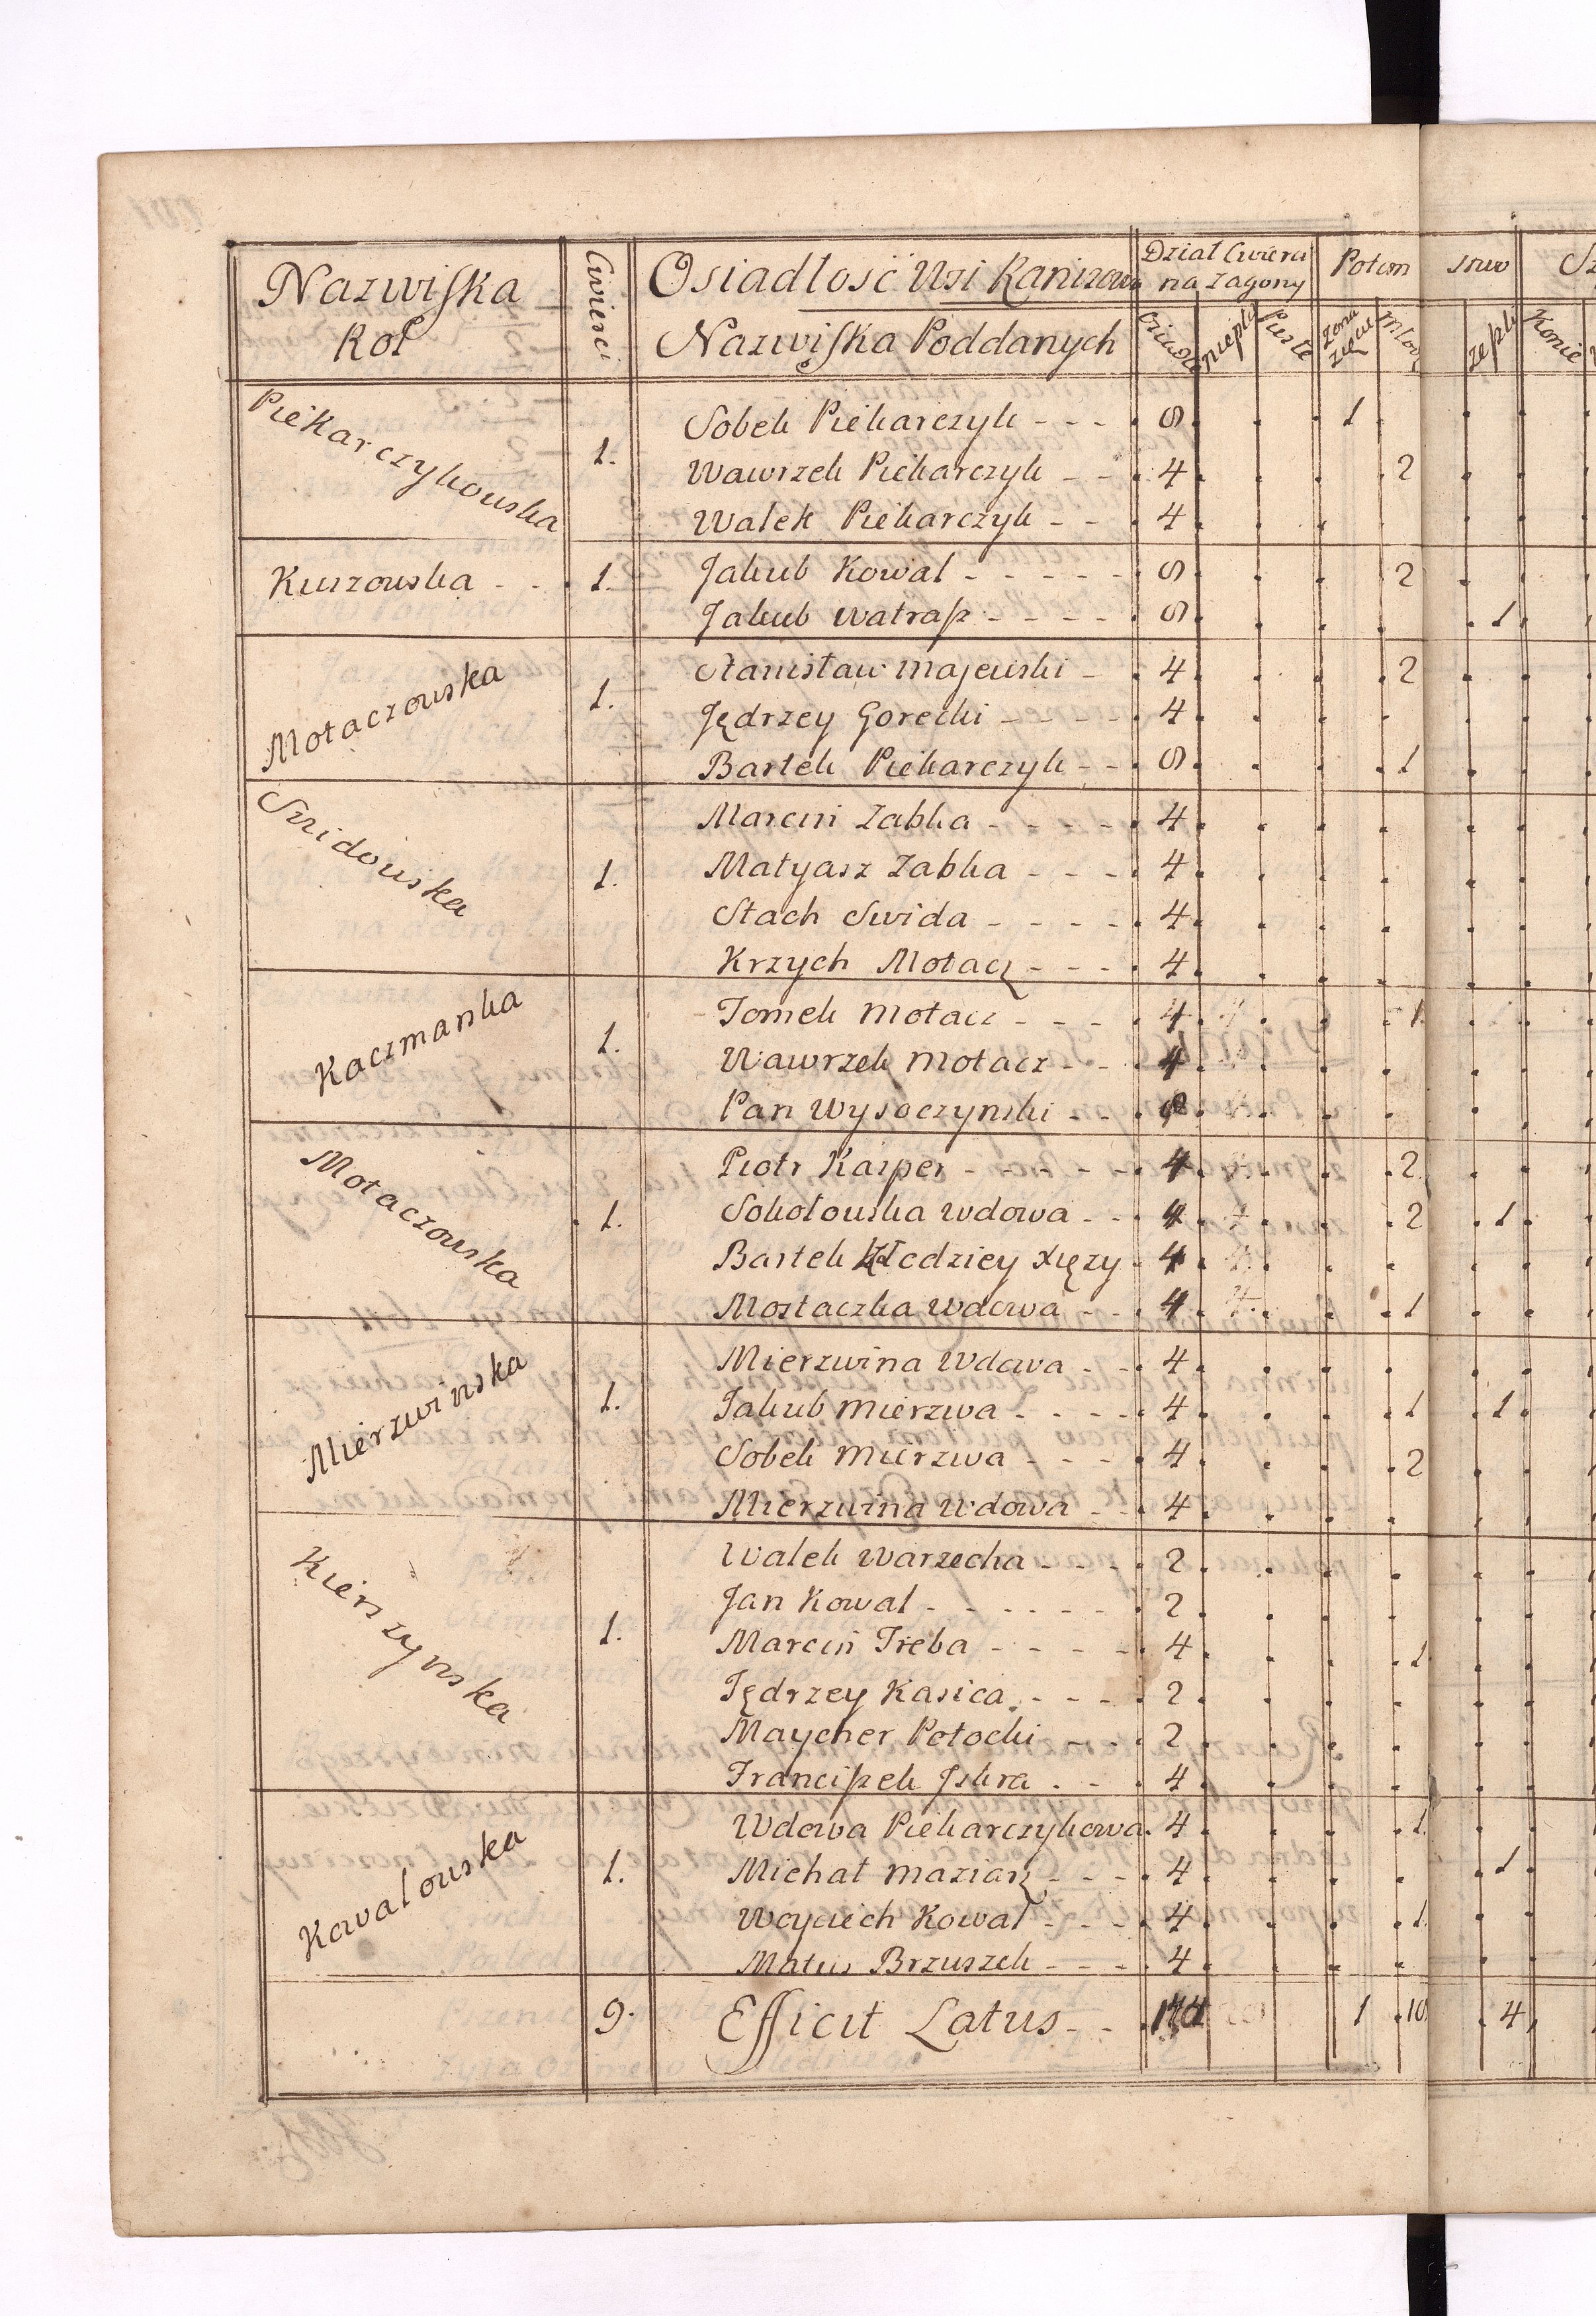 Nazwiska Rol
Cwierci
Osiadłosć Wsi Ranizow
Dział Cwierci na zagony
Potom
stwo
Nazwiska Poddanych
Puste
Konie
Piekarczykowska 1. Sobek Piekarczyk - - - 8 1
Wawrzek Piekarczyk - - 4 2
Walek Piekarczyk - - 4
Kurzowska - - 1. Jakub Kowal - - - - - 8 2
Jakub Watrasz - - - - 8 1
Motaczowska 1. Stanisław Majewski - 4 2
Jędrzey Gorecki - - - - 4
Bartek Piekarczyk - - 8 1
Swidowska 1. Marcin Zabka - - - - 4
Matyasz Zabka - - - 4
Stach Swida - - - - 4
Krzych Motacz - - - 4
Kaczmarska 1. Tomek Motacz - - - 4 1
Wawrzek Motacz - - 4
Pan Wysoczynski - - 8
Motaczowska 1. Piotr Kasper - - - - - 4 2
Sokołowska Wdowa - - 4 2 1
Bartek Kłodziey Xięzy - 4
Mostaczka Wdowa - - 4 1
Mierzwinska 1. Mierzwina Wdowa - - 4
Jakub Mierzwa - - - - 4 1 1
Sobek Mierzwa - - - 4 2
Mierzwina Wdowa - - 4
Kierszynska 1. Walek Warzecha - - - 2
Jan Kowal - - - - - - 2
Marcin Treba - - - - 4 1
Jędrzey Kasica - - - 2
Maycher Potocki - - - 2
Franciszek Iskra - - 4
Kowalowska 1. Wdowa Piekarczykowa 4 1
Michał Maziarz - - - 4 1
Woyciech Kowal - - - 4 1
Matus Brzuszek - - - 4
9. Efficit Latus - - 1 4